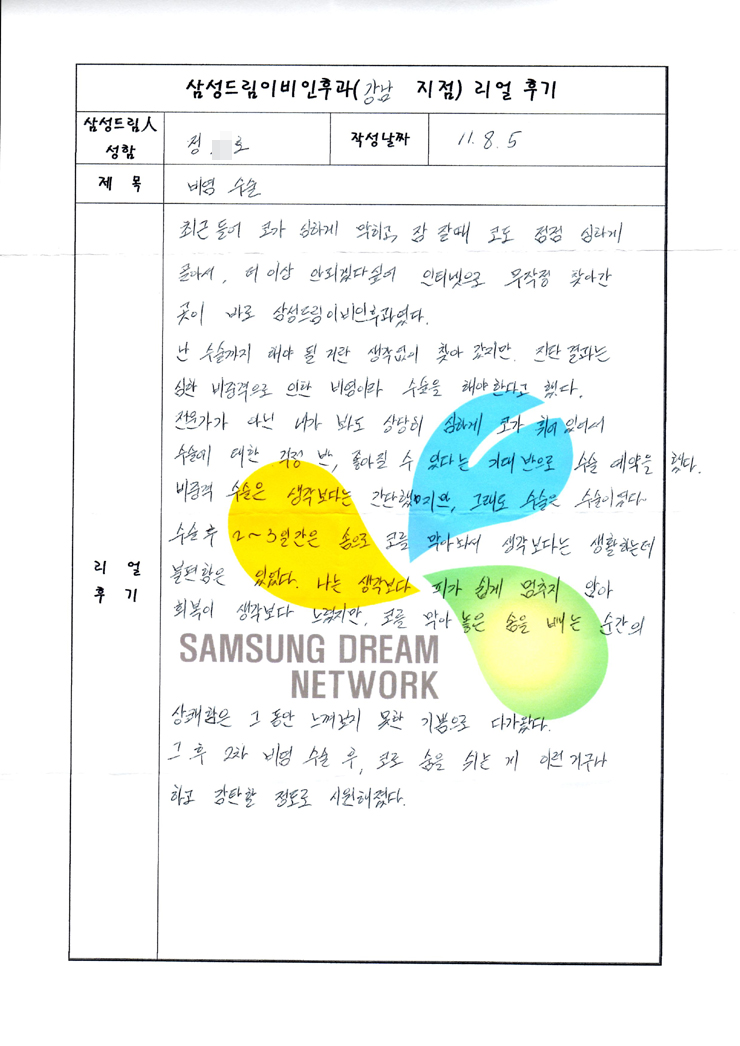 삼성드림이비인후과(강남 지점) 리얼 후기
삼성드림人 성함
정 로
작성날짜
11. 8. 5
제 목
비염 수술
리 얼 후 기
최근 들어 코가 심하게 막히고, 잠 잘때 코도 점점 심하게
골아서, 더 이상 안되겠다싶어 인터넷으로 무작정 찾아간
곳이 바로 삼성드림이비인후과였다.
난 수술까지 해야 될 거란 생각없이 찾아 갔지만 진단 결과는
심한 비중격으로 인한 비염이라 수술을 해야한다고 했다.
전문가가 아닌 내가 봐도 상당히 심하게 코가 휘어 있어서
수술에 대한 걱정 반, 좋아질 수 있다는 기대 반으로 수술 예약을 했다.
비중격 수술은 생각보다는 간단했지만, 그래도 수술은 수술이었다.
수술 후 2~3일간은 솜으로 코를 막아놔서 생각보다는 생활하는데
불편함은 있었다. 나는 생각보다 피가 쉽게 멈추지 않아
회복이 생각보다 느렸지만, 코를 막아 놓은 솜을 빼는 순간의
SAMSUNG DREAM
NETWORK
상쾌함은 그 동안 느껴보지 못한 기쁨으로 다가왔다.
그 후 2차 비염 수술 후, 코로 숨을 쉬는 게 이런거구나
하고 감탄할 정도로 시원해졌다.